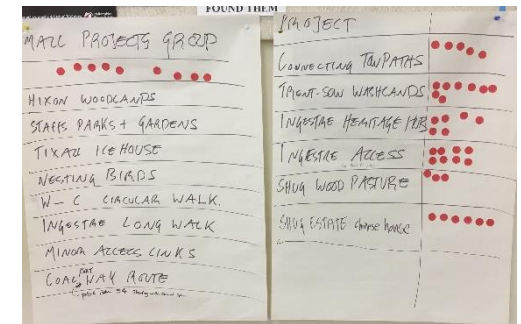 FOUND THEM
MALL PROJECTS GROUP
HIXON WOODLANDS
STAFFS PARKS + GARDENS
TIXALL ICE HOUSE
NESTING BIRDS
W - C CIRCULAR WALK.
INGESTRE LONG WALK
MINOR ACCESS LINKS
COAL WAY ROUTE
PROJECT
CONNECTING TOWPATHS
TRENT-SOW WASHLANDS
INGESTRE HERITAGE HUB
INGESTRE ACCESS
SHUG WOOD PASTURE
SHUG ESTATE chinese house